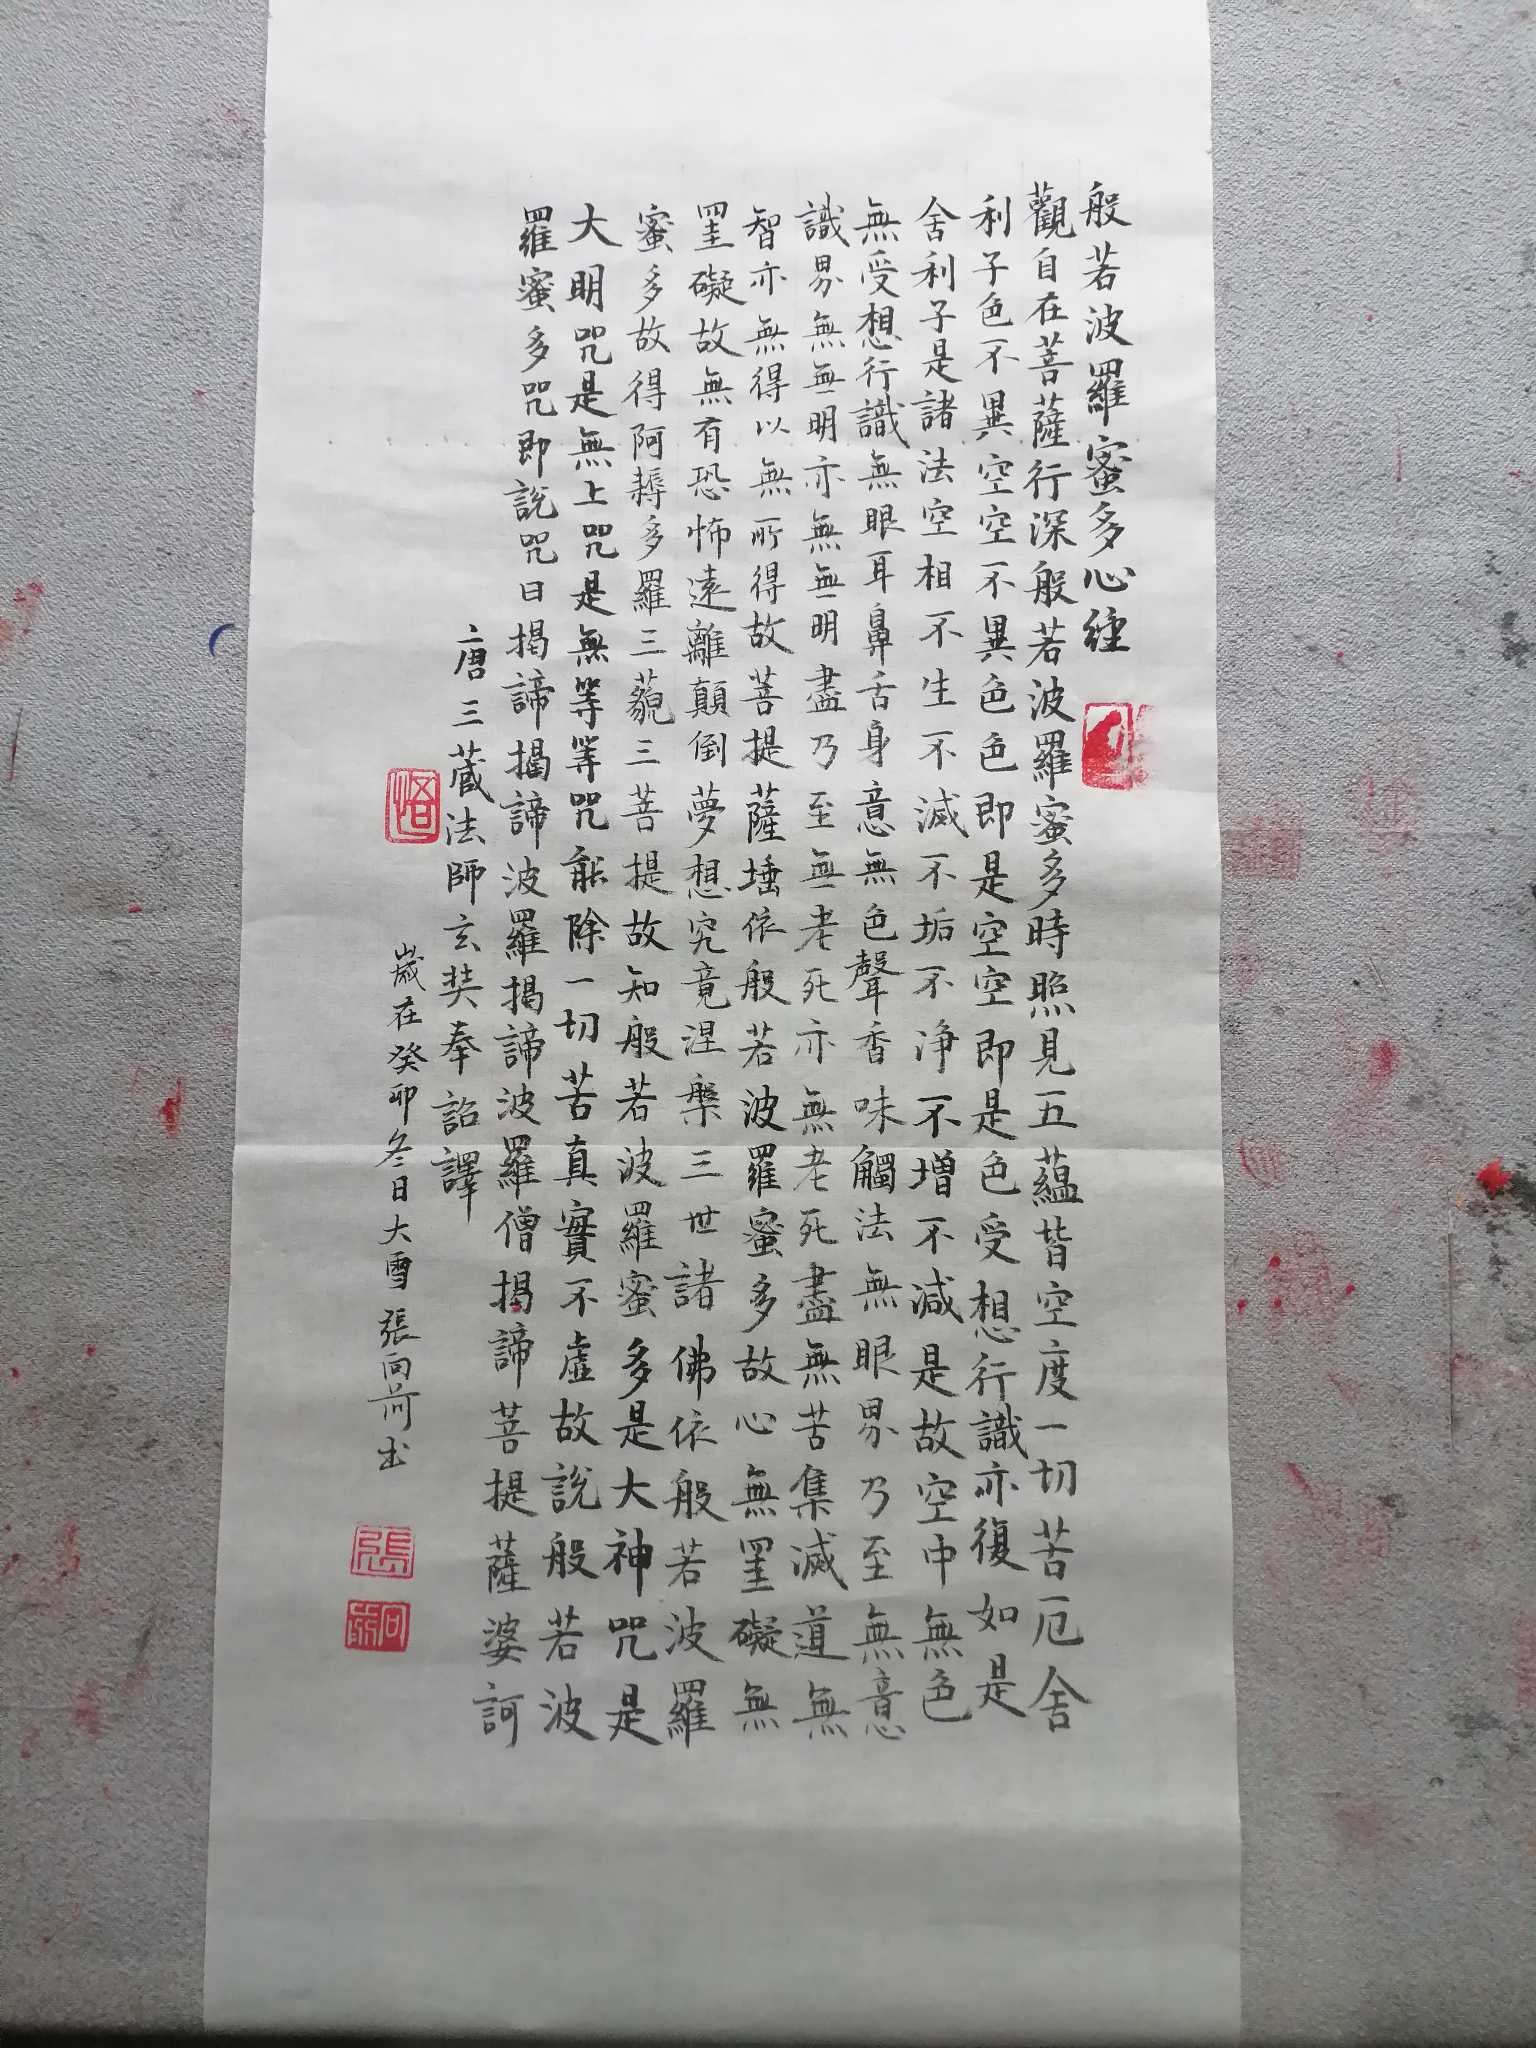 般若波羅蜜多心經
觀自在菩薩行深般若波羅蜜多時照見五蘊皆空度一切苦厄舍
利子色不異空空不異色色即是空空即是色受想行識亦復如是
舍利子是諸法空相不生不滅不垢不淨不增不減是故空中無色
無受想行識無眼耳鼻舌身意無色聲香味觸法無眼界乃至無意
識界無無明亦無無明盡乃至無老死亦無老死盡無苦集滅道無
智亦無得以無所得故菩提薩埵依般若波羅蜜多故心無罣礙無
罣礙故無有恐怖遠離顛倒夢想究竟涅槃三世諸佛依般若波羅
蜜多故得阿耨多羅三藐三菩提故知般若波羅蜜多是大神咒是
大明咒是無上咒是無等等咒能除一切苦真實不虛故說般若波
羅蜜多咒即說咒曰揭諦揭諦波羅揭諦波羅僧揭諦菩提薩婆訶
唐三藏法師玄奘奉詔譯
歲在癸卯冬日大雪張向前书
悟
張
向前